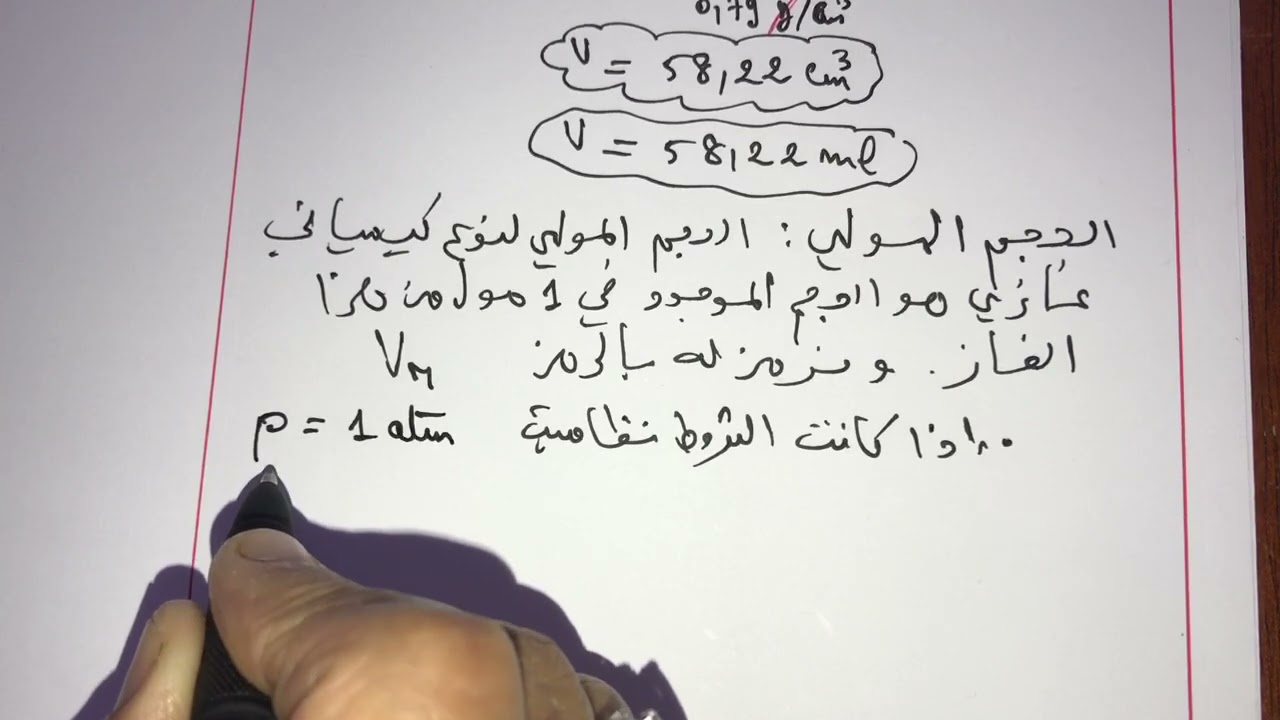 0,79 g/cm³
V = 58,22 cm³
V = 58,22 ml
الحجم المولي : الحجم المولي لنوع كيميائي
غازي هو الحجم الموجود في 1 مول من هذا
الغاز. ونرمز له بالرمز V_M
• إذا كانت الشروط نظامية P = 1 atm